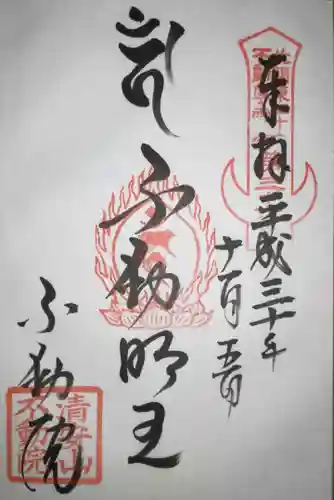 奉拝 平成三十年
十一月五日
不動明王
不動院
清安山
不動院